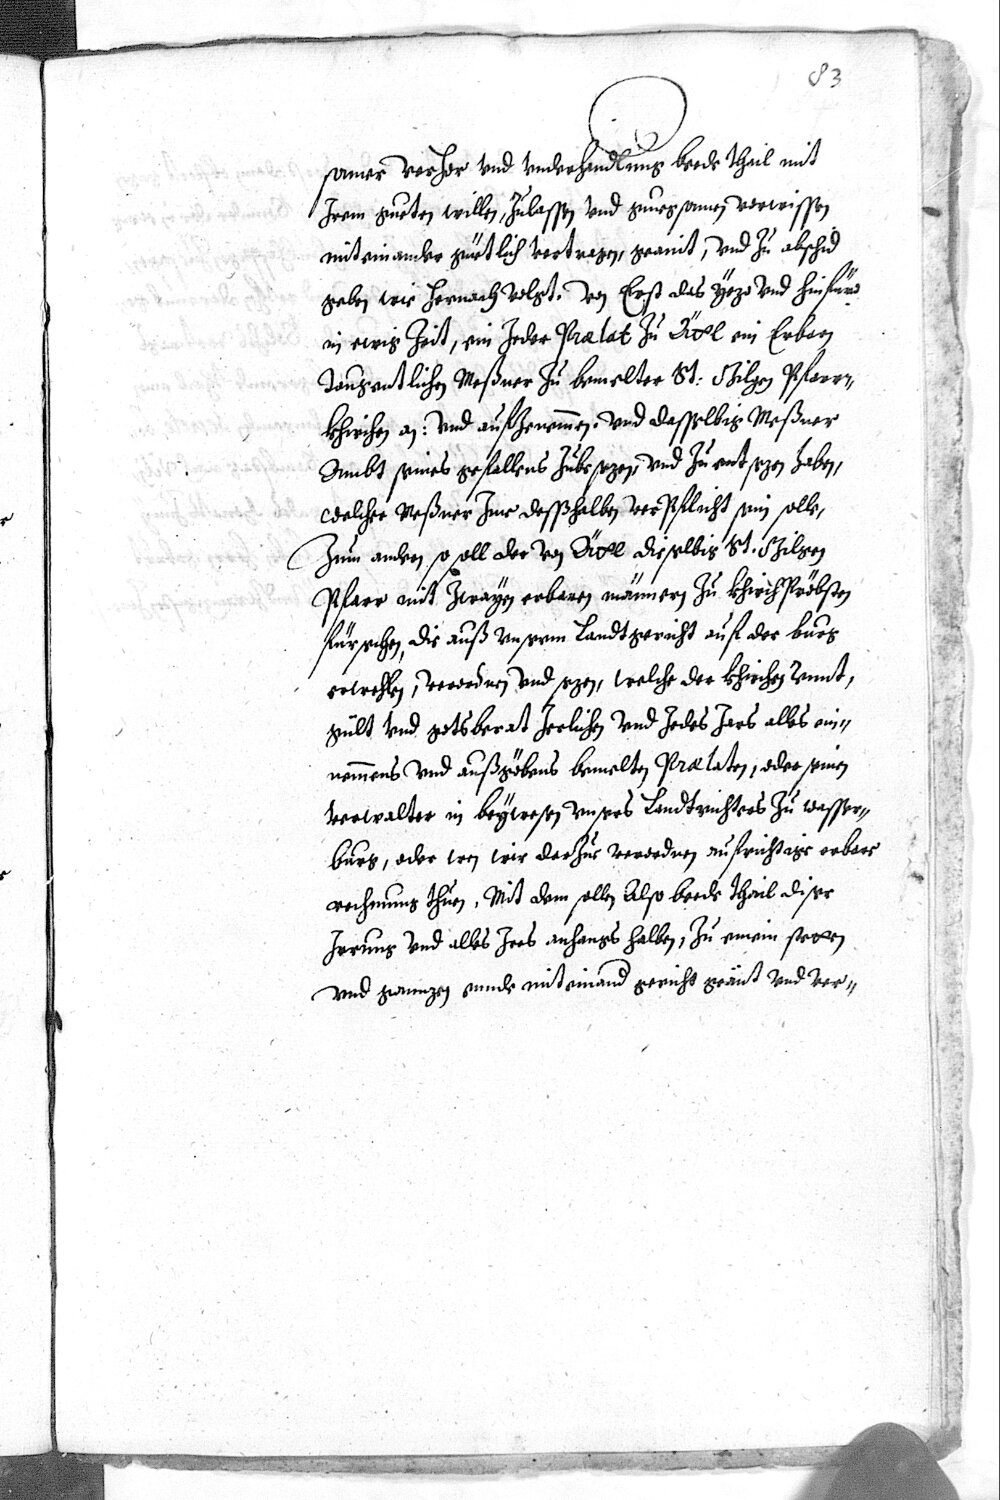 83
samer verhör vnd vnderhandlung beede thail mit
Irem gueten willen, Zulassen vnd gnuegsamen vorwissen
miteinander güetlich vertragen, geainit, vnd Zu abschid
geben wie hernach volgt. Von Erst das Yezo vnd hinfüro
in ewig Zeit, ein Jeder Prælat Zu Ättl ein Erbarn
Taugentlichen Meßner Zu bemelter St: Gilgen Pfarr-
khirchen an: vnd aufZenemmen, vnd dasselbig Meßner
Ambt seines gefallens Zubesezen, vnd Zu entsezen haben,
welcher Meßner Ime desßhalben verPflicht sein solle,
Zum andern so soll der von Ättl dieselbig St. Gilgen
Pfarr mit Zwayen erbaren männern Zu khirchPröbsten
fürsehen, die auß vnserm Landtgericht auf der burg
erwehlen, verordnen vnd sezen, welche der khirchen Rennt,
gült vnd gotsberat Jerlichen vnd Jedes Jars alles ein-
nemmens vnd außgebens bemelten Prælaten, oder seinen
verwalter in beywesen vnsers Landtrichters Zu wasser-
burg, oder wen wir darZue verordnen aufrichtige erbare
rechnung thuen. Mit dem sollen Also beede thail diser
Irrung vnd alles Ires anhangs halben, Zu einem steten
vnd ganzen ennde miteinand gericht geaint vnd ver-